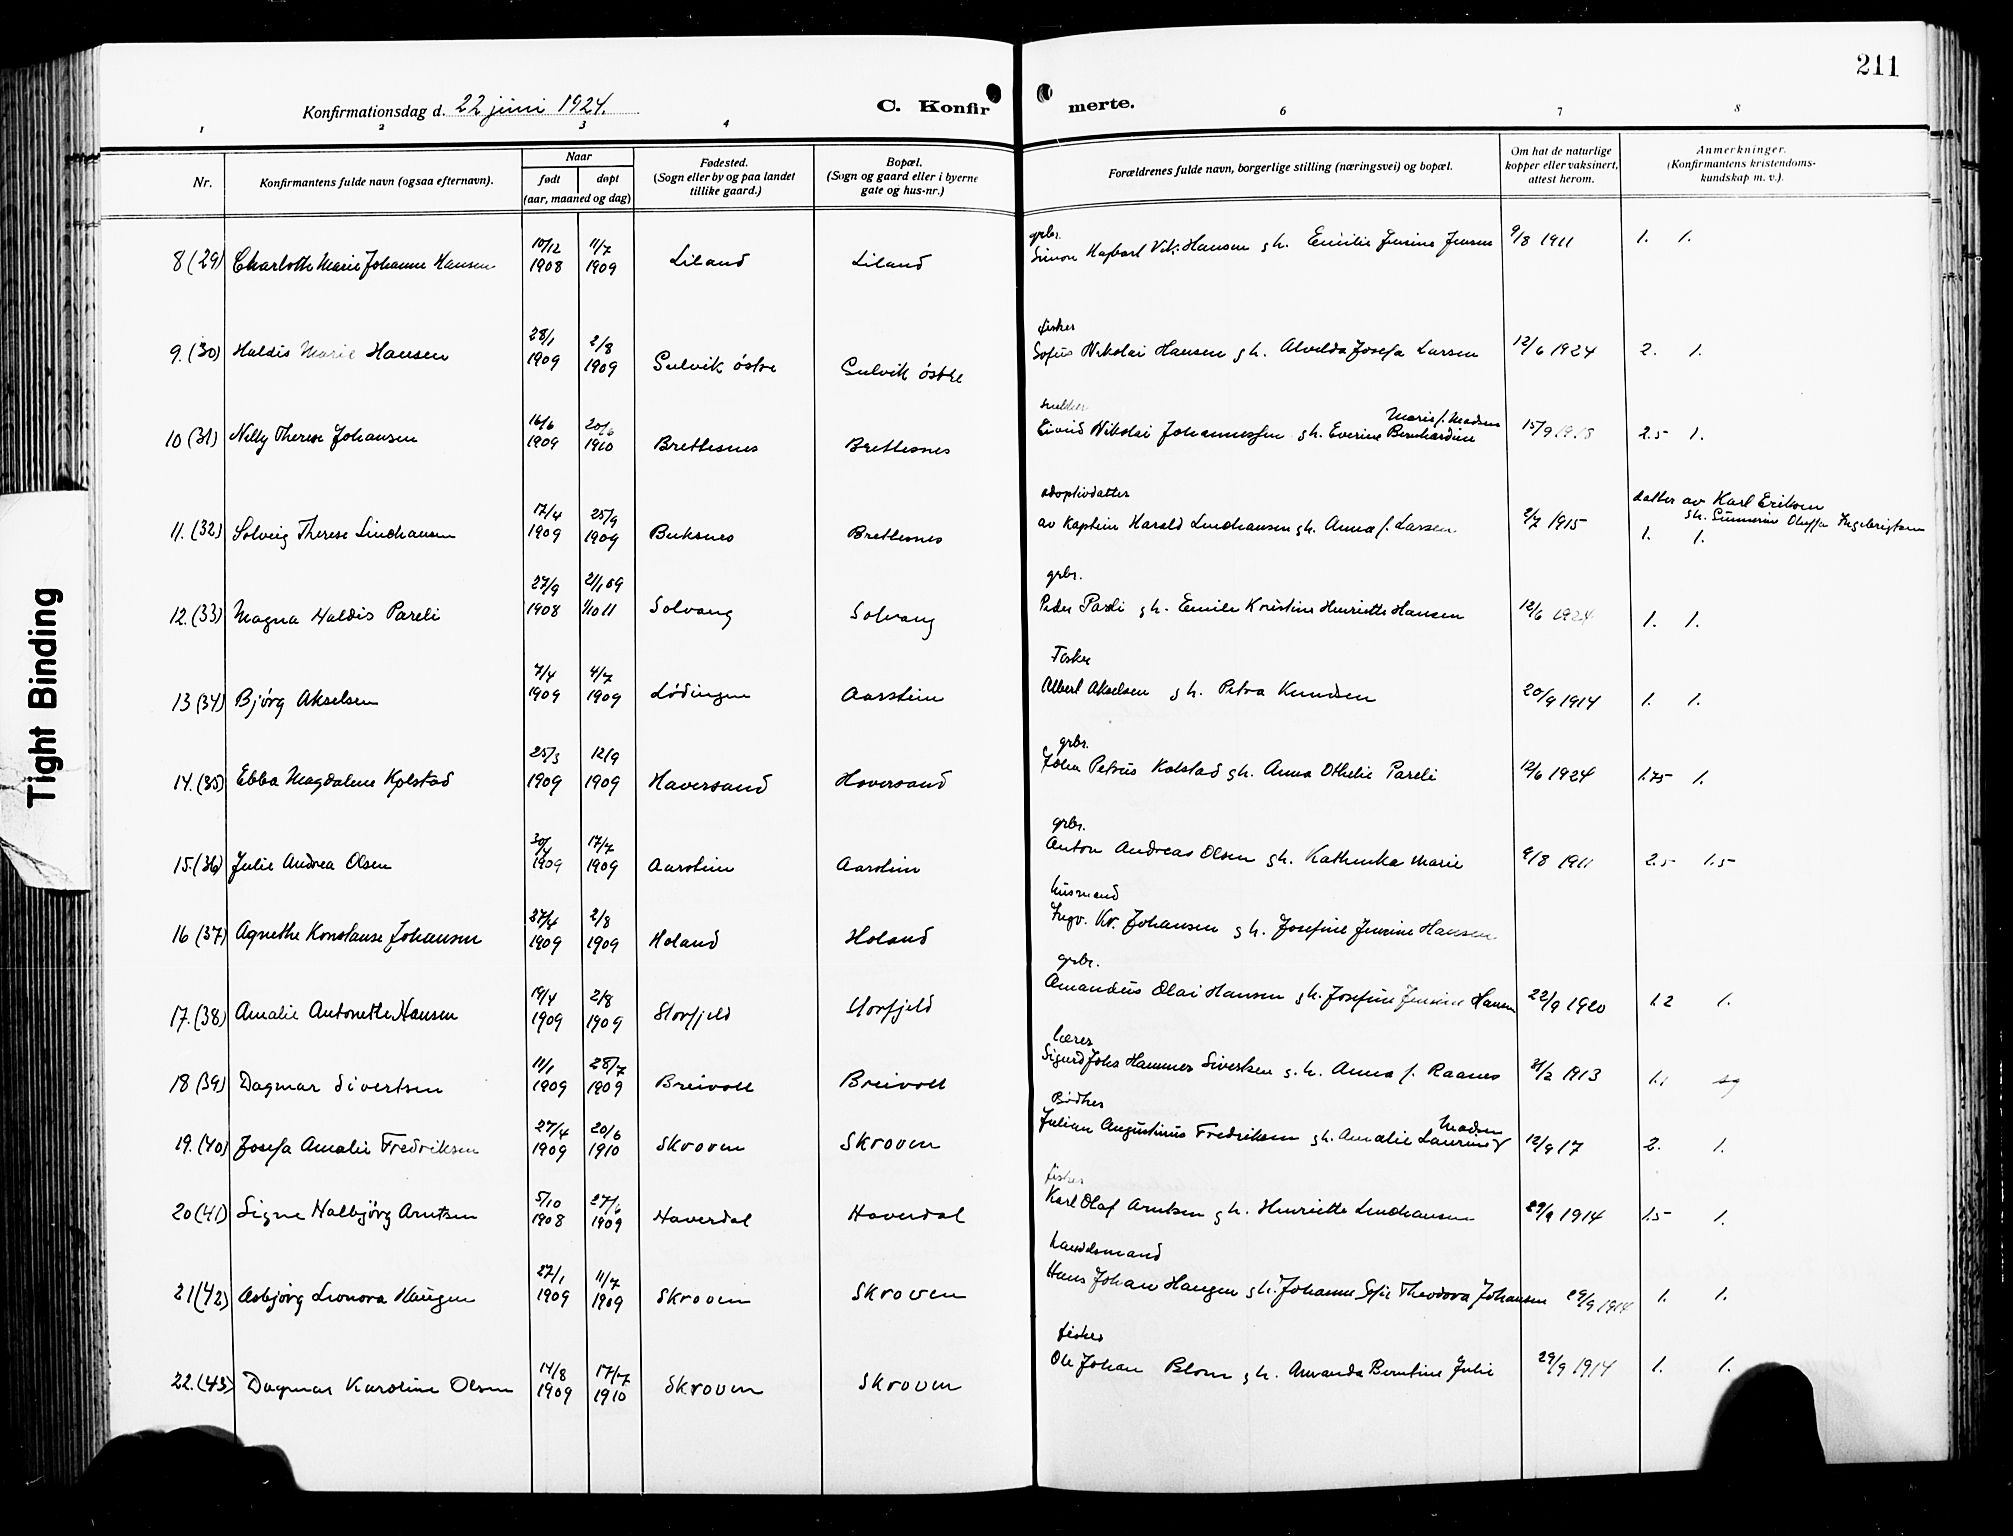 211
Konfirmationsdag d. 22 juni 1924.
C. Konfirmerte.
1 2 3 4 6 7 8
Nr.
Konfirmantens fulde navn (ogsaa efternavn).
Naar
født døpt
(aar, maaned og dag)
Fødested.
(Sogn eller by og paa landet
tillike gaard.)
Bopæl.
(Sogn og gaard eller i byerne
gate og hus-nr.)
Forældrenes fulde navn, borgerlige stilling (næringsvei) og bopæl.
Om hat de naturlige
kopper eller vaksinert,
attest herom.
Anmerkninger.
(Konfirmantens kristendoms-
kundskap m. v.).
Tight Binding
8 (29) Charlotte Marie Johanne Hansen 10/12 1908 11/7 1909 Liland Liland
grbr.
Simon Hagbart Vik. Hansen gh. Emilie Jensine Jensen 9/8 1911 1. 1.
9. (30) Haldis Marie Hansen 28/1 1909 2/8 1909 Gulvik østre Gulvik østre
fisker
Sofus Nikolai Hansen gh. Alvelda Josefa Larsen 12/6 1924 2. 1.
10 (31) Nelly Therese Johansen 16/6 1909 20/6 1910 Brettesnes Brettesnes
Marie f. Madsen
Eivind Nikolai Johannessen gh. Everine Bernhardine 15/9 1915 2.5 1.
11. (32) Solveig Therese Lindhansen 17/4 1909 25/9 1909 Buksnes Brettesnes
adoptivdatter
av kaptein Harald Lindhansen gh. Anna f. Larsen 2/7 1915
datter av Karl Eriksen
gh. Gunnerine Oluffa Ingebrigtsen
1. 1.
12. (33) Magna Haldis Pareli 27/9 1908 21/1 09 1/10 11 Solvang Solvang
grbr.
Peder Pareli gh. Emilie Kristine Henriette Hansen 12/6 1924 1. 1.
13 (34) Bjørg Akselsen 7/4 1909 4/7 1909 Lødingen Aarstein
Fisker
Albert Akselsen gh. Petra Knudsen 20/9 1914 1. 1.
14. (35) Ebba Magdalene Kolstad 25/3 1909 12/9 1909 Haversand Haversand
grbr.
Johan Petrus Kolstad gh. Anna Othelie Pareli 12/6 1924 1.75 1.
15. (36) Julie Andrea Olsen 30/4 1909 17/7 1909 Aarstein Aarstein
grbr.
Anton Andreas Olsen gh. Kathinka Marie 9/8 1911 2.5 1.5
16 (37) Agnethe Konstanse Johansen 27/4 1909 2/8 1909 Holand Holand
husmand
Ingv. Kr. Johansen gh. Josefine Jensine Hansen
17. (38) Amalie Antonette Hansen 19/4 1909 2/8 1909 Storfjeld Storfjeld
grbr.
Amandus Olai Hansen gh. Josefine Jensine Hansen 22/9 1920 1.2 1.
18 (39) Dagmar Sivertsen 11/1 1909 28/7 1909 Breivoll Breivoll
lærer
Sigurd Johs Hammer Sivertsen g. h. Anna f. Raanes 21/2 1913 1.1 sg
19. (40) Josefa Amalie Fredriksen 27/4 1909 20/6 1910 Skroven Skroven
Bødker
Madsen
Julian Augustinus Fredriksen gh. Amalie Laurine 12/9 17 2. 1.
20 (41) Signe Halbjørg Arntsen 5/10 1908 27/6 1909 Haverdal Haverdal
fisker
Karl Olaf Arntsen gh. Henriette Lindhansen 29/9 1914 1.5 1.
21 (42) Asbjørg Leonora Haugen 27/1 1909 11/7 1909 Skroven Skroven
handelsmand
Hans Johan Haugen gh. Johanne Sofie Theodora Johansen 29/9 1914 1. 1.
22. (43) Dagmar Karoline Olsen 14/8 1909 17/7 1910 Skroven Skroven
fisker
Ole Johan Blom gh. Amanda Berntine Julie 29/9 1914 1. 1.